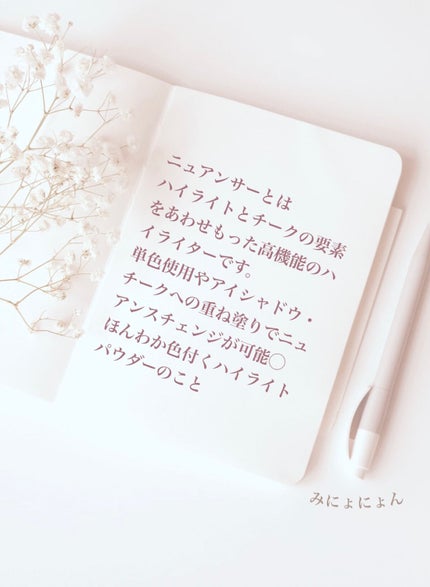 ニュアンサーとは
ハイライトとチークの要素
をあわせもった高機能のハ
イライターです。
単色使用やアイシャドウ・
チークへの重ね塗りでニュ
アンスチェンジが可能◯
ほんわか色付くハイライト
パウダーのこと
みにょにょん